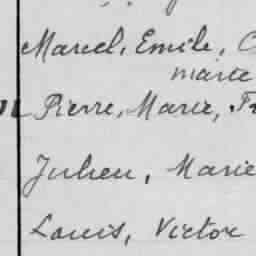 Marcel, Emile,
Marie
Pierre, Marie, Fr
Julien, Marie
Louis, Victor